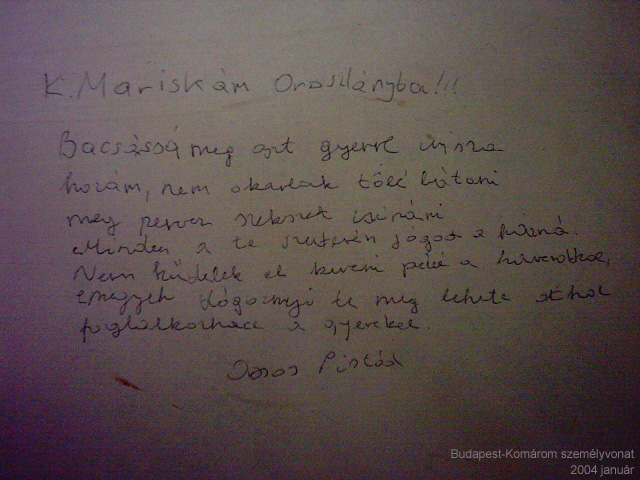 K. Mariskám Oroszlányba!!!
Bacsássá meg azt gyerre vissza
hozám, nem akarlak töllé bátani
meg perver szekszet csináni
Minden a te szuterén jógos a házná.
Nem küdelek el kuveni pélé a
elmegyek dógoznyi te meg lehete othol
foglalkozhacc a gyerekel.
Pistád
Budapest-Komárom személyvonat
2004 január